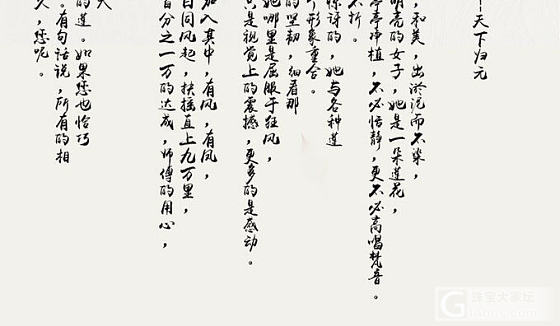 天下归元
，和美，出淤泥而不染，
明亮的女子，她是一朵莲花，
亭亭净植，不必恬静，更不必高唱梵音。
不折。
惊讶的，她与各种莲
形象重合。
的坚韧，细看那
她哪里是屈服于狂风，
只是视觉上的震撼，更多的是感动。
加入其中，有风，有凤，
日同风起，扶摇直上九万里，
百分之一万的达成，师傅的用心，
的道。如果您也恰巧
。有句话说，所有的相
久，您呢。
珠宝大家坛